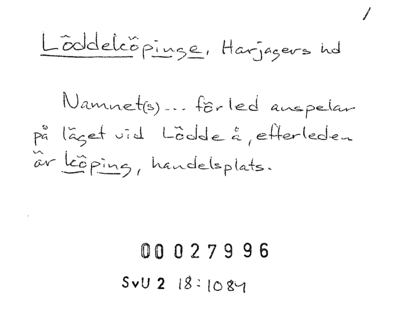 1
Löddeköpinge, Harjagers hd
Namnet(s)... förled anspelar
på läget vid Lödde å, efterleden
är köping, handelsplats.
00027996
SvU 2 18:1084